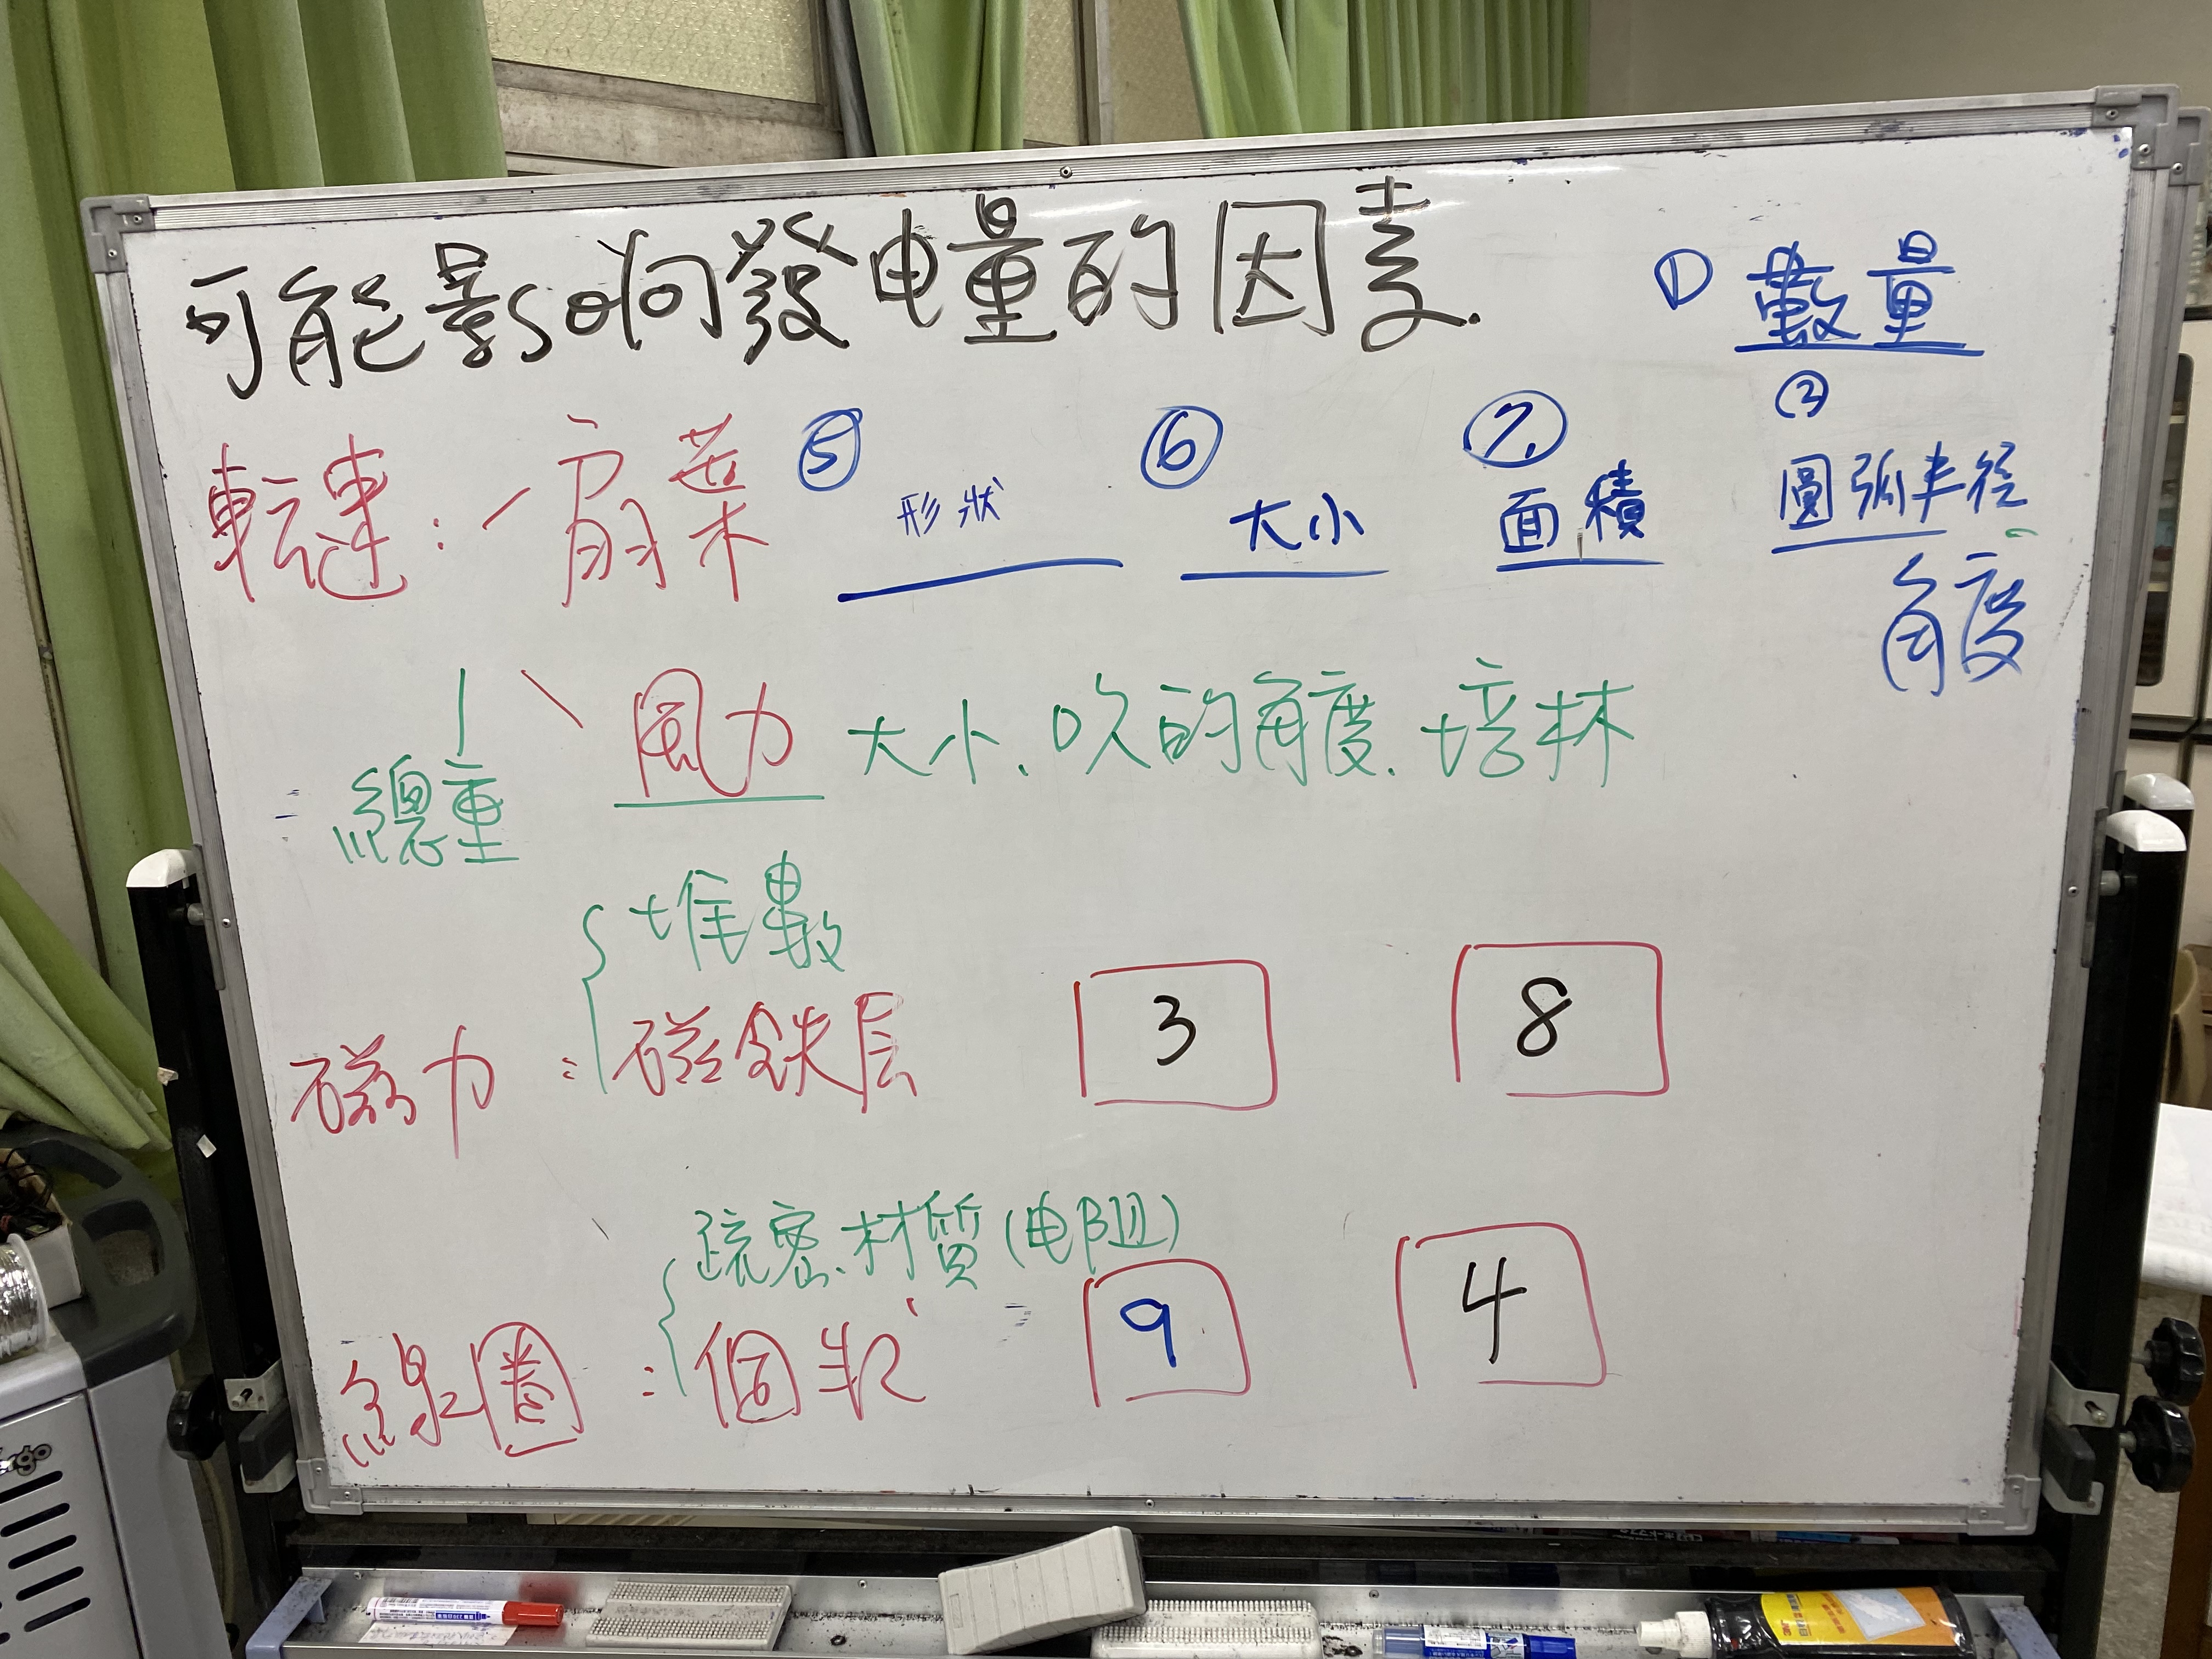 可能影响發电量的因素.
① 數量
転速：扇葉 ⑤ 形狀 ⑥ 大小 ⑦. 面積 ② 圓弧半径
角度
總重 風力 大小、吹的角度、培林
堆數
磁力：磁鉄层 3 8
疏密、材質(电阻)
線圈：個数 9 4